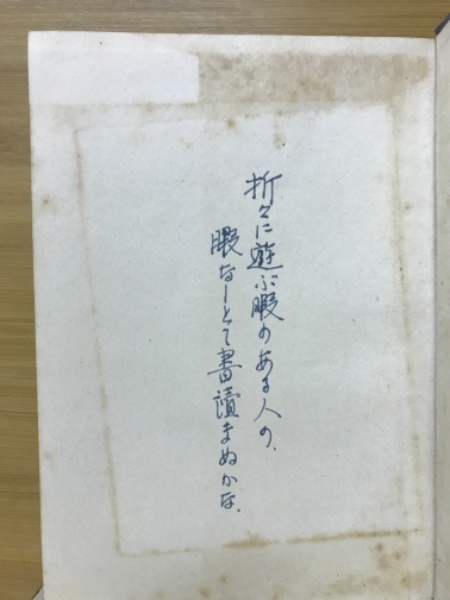 折々に遊ぶ暇のある人の、
暇なしとて書讀まぬかな.